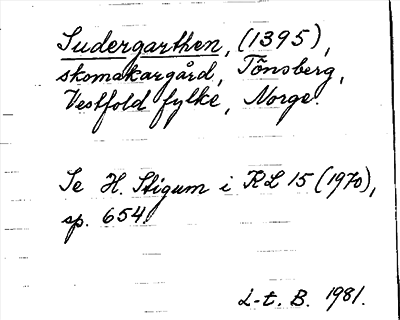 Sudergarthen, (1395),
skomakargård, Tönsberg,
Vestfold fylke, Norge.
Se H. Stigum i KL 15 (1970),
sp. 654.
L-t. B. 1981.